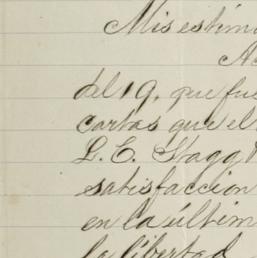 Mis estim
Ac
del 19, que fue
cartas que el
L. E. Stagg
satisfaccion
en la últim
la libertad